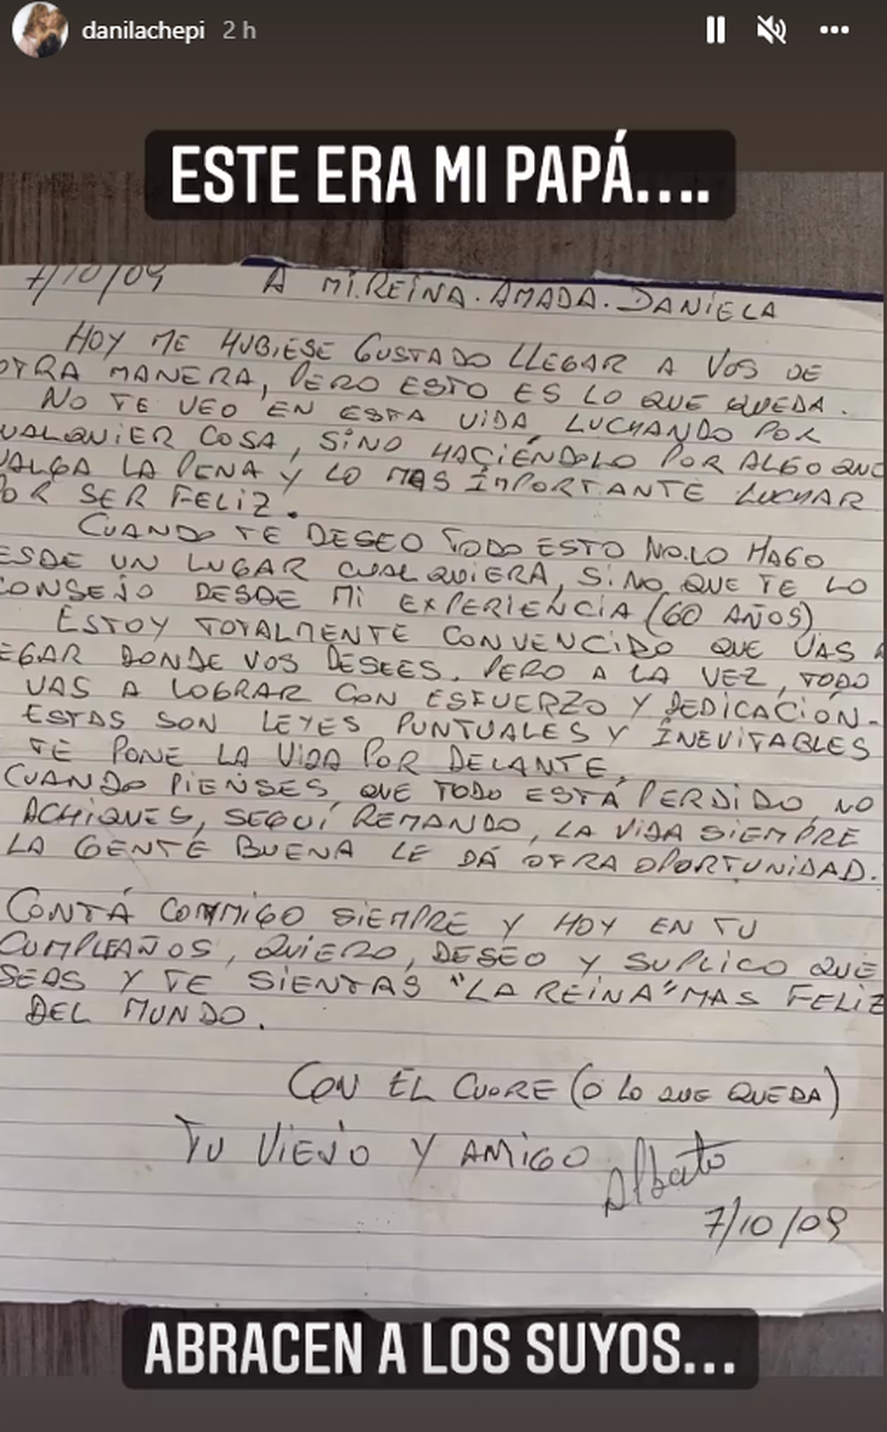 danilachepi 2 h
ESTE ERA MI PAPÁ....
7/10/09 A MI.REINA.AMADA.DANIELA
HOY ME HUBIESE GUSTADO LLEGAR A VOS DE
OTRA MANERA, PERO ESTO ES LO QUE QUEDA.
NO TE VEO EN ESTA VIDA LUCHANDO POR
UALQUIER COSA, SINO HACIÉNDOLO POR ALGO QUE
VALGA LA PENA Y LO MAS IMPORTANTE LUCHAR
POR SER FELIZ.
CUANDO TE DESEO TODO ESTO NO.LO HAGO
ESDE UN LUGAR CUALQUIERA, SINO QUE TE LO
CONSEJO DESDE MI EXPERIENCIA (60 AÑOS)
ESTOY TOTALMENTE CONVENCIDO QUE VAS A
EGAR DONDE VOS DESEES. PERO A LA VEZ, TODO
VAS A LOGRAR CON ESFUERZO Y DEDICACIÓN-
ESTAS SON LEYES PUNTUALES Y INEVITABLES
TE PONE LA VIDA POR DELANTE,
CUANDO PIENSES QUE TODO ESTÁ PERDIDO NO
ACHIQUES, SEGUÍ REMANDO, LA VIDA SIEMPRE
LA GENTE BUENA LE DÁ OTRA OPORTUNIDAD.
CONTÁ CONMIGO SIEMPRE Y HOY EN TU
CUMPLEAÑOS, QUIERO, DESEO Y SUPLICO QUE
SEAS Y TE SIENTAS "LA REINA" MAS FELIZ
DEL MUNDO.
CON EL CUORE (O LO QUE QUEDA)
TU VIEJO Y AMIGO Alberto
7/10/09
ABRACEN A LOS SUYOS...